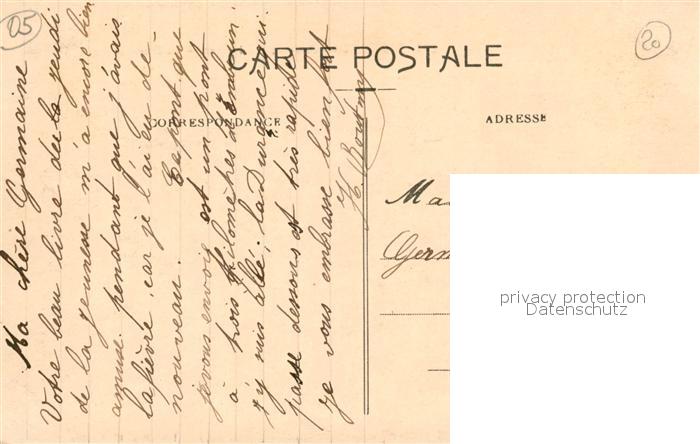 05
20
CARTE POSTALE
CORRESPONDANCE
ADRESSE
Ma chère Germaine
Votre beau livre de la jeudi
de la jeunesse m'a encore bien
amusé pendant que j'avais
la fièvre, car je l'ai eu de
nouveau. Ce pont que
je vous envoie est un pont
à trois kilomètres d'Embrun
j'y suis allé; la Durance qui
passe dessous est très rapide
je vous embrasse bien fort
Ma
Germ
privacy protection
Datenschutz